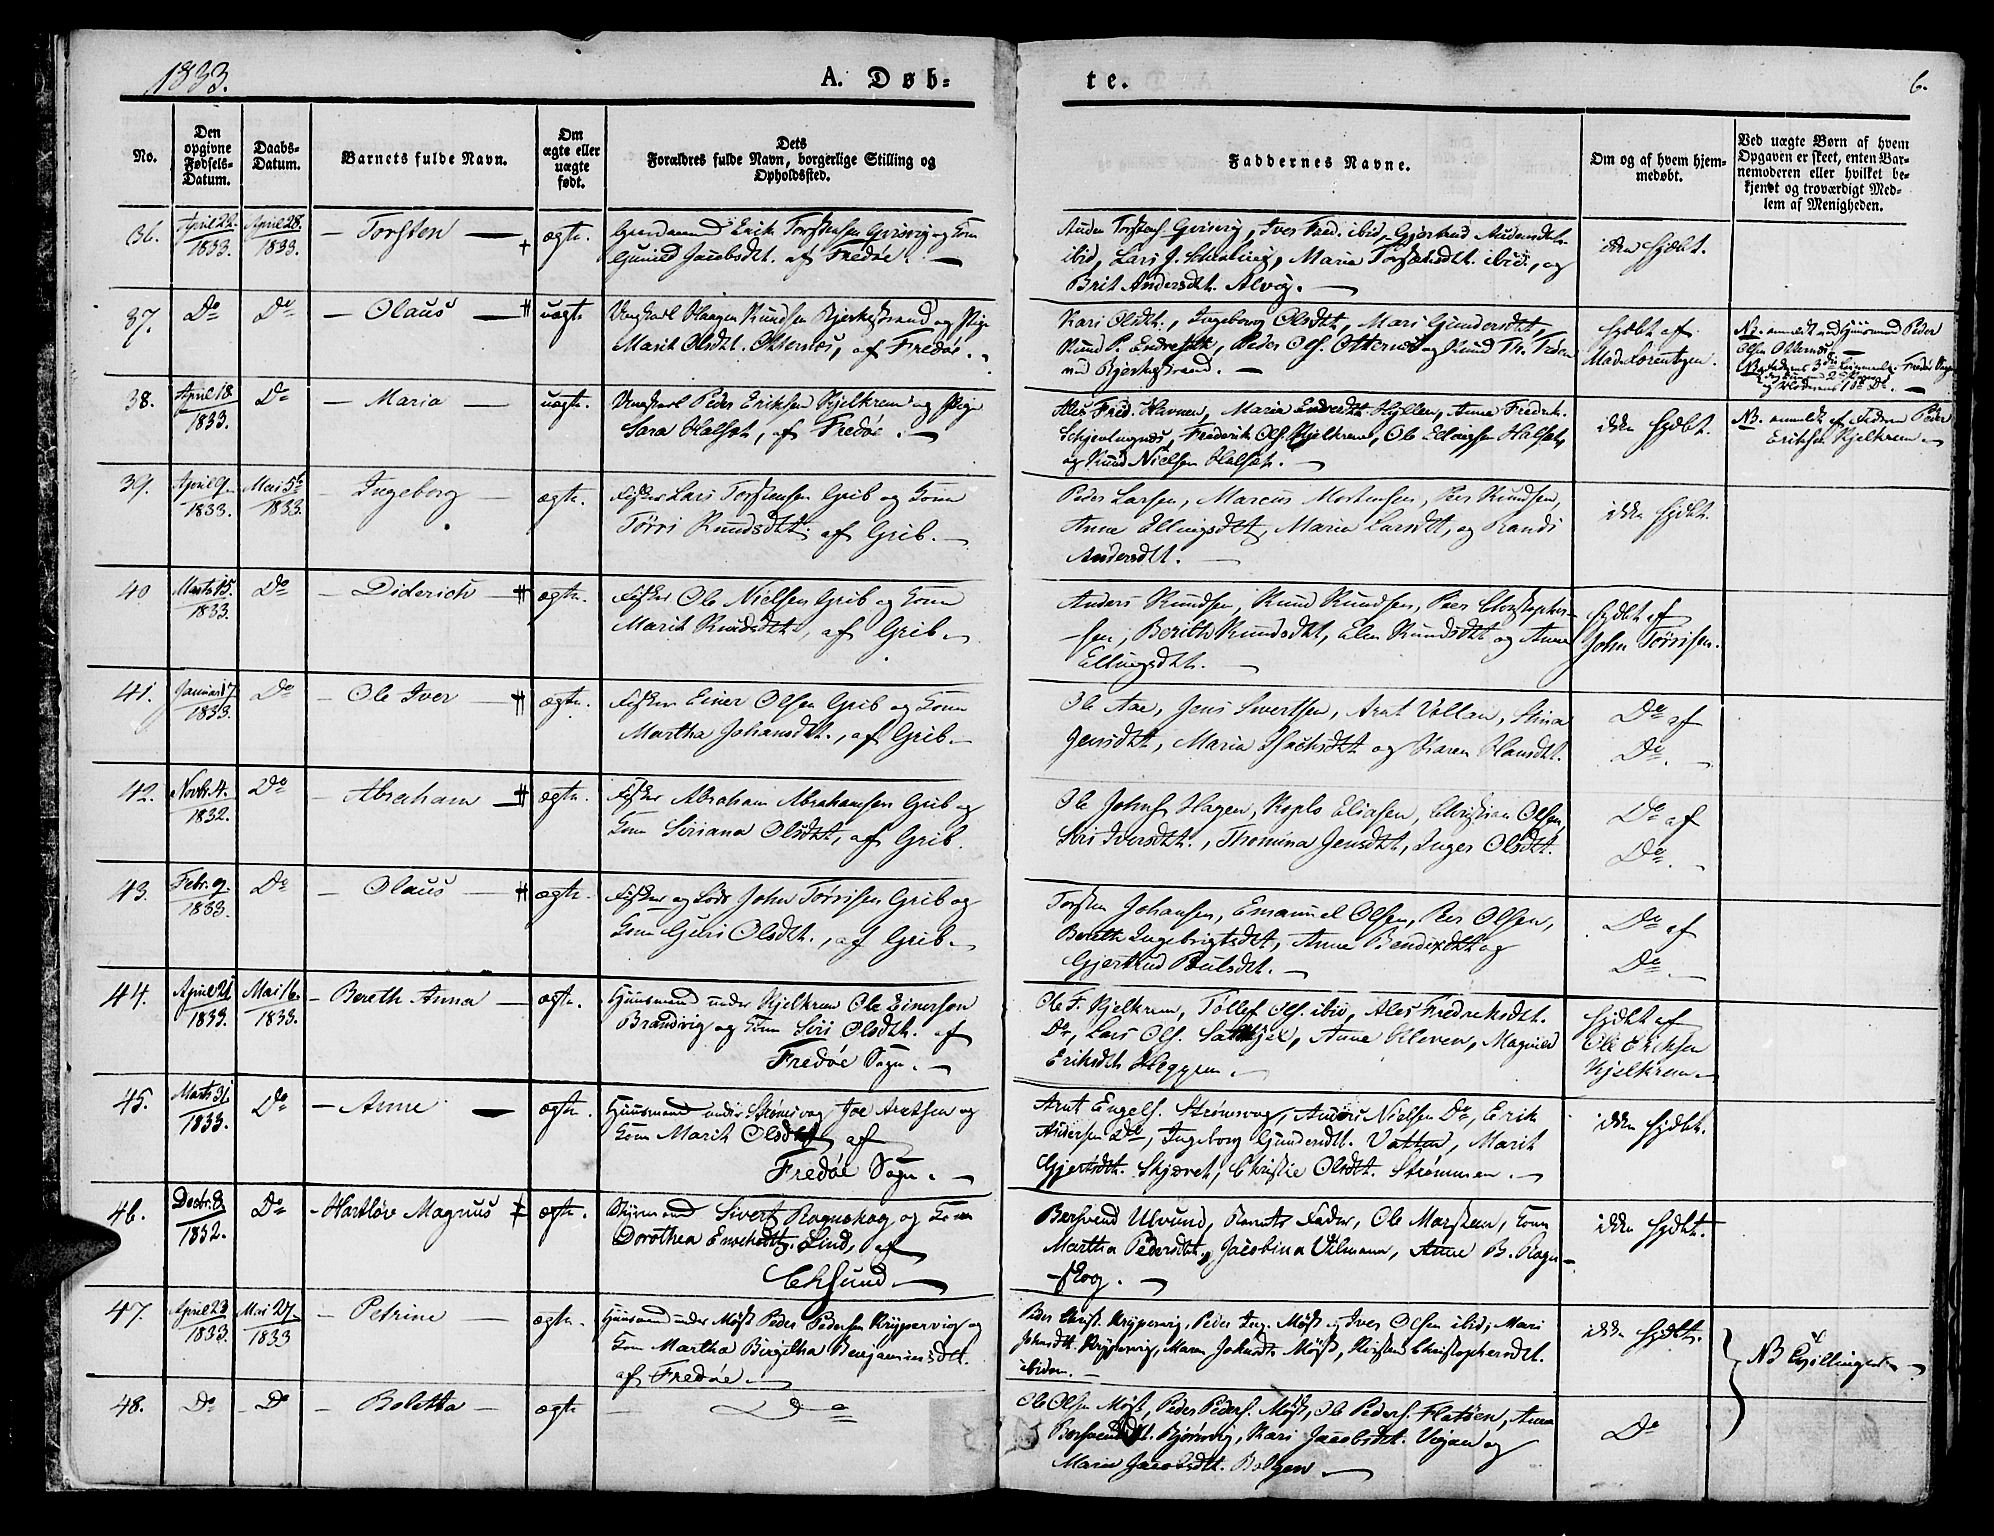 1833.
A. Døb-
te.
6.
No.
Den opgivne Fødsels-Datum.
Daabs-Datum.
Barnets fulde Navn.
Om ægte eller uægte født.
Dets Forældres fulde Navn, borgerlige Stilling og Opholdssted.
Faddernes Navne.
Om og af hvem hjemmedøbt.
Ved uægte Børn af hvem Opgaven er skeet, enten Barnemoderen eller hvilket bekjendt og troværdigt Medlem af Menigheden.
36. April 22. 1833. April 28. 1833. – Torsten – ægte.
Erik Torstensen Gvisvig og Kone
Gunild Jacobsdt. af Fredøe. –
Auden Torstens. Gvisvig, Iver Fred. ibid,
ibid, Lars J. Maria Torstensdt. ibid., og
Brit Andersdt. Alvig. –
ikke hjdbt.
37. Do Do – Olaus – uægte
Ungkarl Haagen Knudsen Bjerkestrand og Pige
Marit Olsdt. Otternæs, af Fredøe.
Kari Olsdt., Ingeborg Olsdtt, Mari Gundersdtt,
Knud P. Peder Ols. Otternæs og Knud Th.
Bjerkestrand. –
hjdbt af
Mad. Lorentzen.
Nb. anmeldt ved Huusmand Peder
Olsen Otternæs –
38. April 18. 1833. Do – Maria – uægte.
Ungkarl Peder Eriksen Kjelkrem og Pige
Sara Halset, af Fredøe. –
Ales Fred. Havnen, Maria Hyllen, Anne Fredrik.
Frederik Ols. Kjelkrem, Ole Halset,
og Knud Nielsen Halset. –
ikke hjdbt.
NB. anmeldt af Faderen Peder
Eriksen Kjelkrem. –
39. April 9. 1833. Mai 5te 1833. – Ingeborg – ægte.
Fisker Lars Torstensen Grib og Kone
Tørri Knudsdtt. af Grib. –
Peder Larsen, Marcus Mortensen, Peer Knudsen,
Anne Ellingsdtt, Maria Larsdtt, og Randi
Andersdt. –
ikke hjdbt.
40 Marts 15. 1833. Do – Diderich – ægte.
Fisker Ole Nielsen Grib og Kone
Marit Knudsdtt., af Grib. –
Anders Knudsen, Knud Knudsen, Peer Christopher-
sen, Berith Knudsdtt, Elen Knudsdtt og Anne
Ellingsdtt. –
hjdbt af
John Tørrisen.
41. Januar 17 1833. Do – Ole Iver – ægte.
Fisker Einer Olsen Grib og Kone
Martha Johansdt., af Grib. –
Ole Aae, Jens Sivertsen, Arnt Vollan, Stina
Jensdtt, Maria Isachsdtt og Karen Hansdtt.
Do af
Do.
42. Novbr. 4. 1832. Do – Abraham – ægte.
Fisker Abraham Abrahamsen Grib og
Kone Siriana Olsdtt, af Grib.
Ole Johns. Hagen, Kopls Eliasen, Christian Olsen,
Siri Iversdtt., Thomina Jensdtt, Inger Olsdtt.
Do af
Do.
43. Febr. 9. 1833. Do – Olaus – ægte.
Fisker og Lods John Tørrisen Grib og
Kone Guri Olsdt., af Grib. –
Torsten Johansen, Emanuel Olsen, Peer Olsen,
Berith Ingebrigtsdtt, Anne Bendixdtt og
Gjertrud Paulsdt. –
Do af
Do.
44. April 21 1833. Mai 16. 1833. – Bereth Anna – ægte.
Huusmand under Kjelkrem Ole Einersen
Brandvig og Kone Siri Olsdt. af
Fredøe Sogn. –
Ole F. Kjelkrem, Tøllef Ols. ibid, Ales Fredreksdt.
Do, Lars Ols. Anne Kleven, Magnild
Eriksdt. Heggem. –
hjdbt af
Ole Eriksen
Kjelkrem. –
45. Marts 31 1833. Do – Anne – ægte.
Huusmand under Strømsvag Joe Arntsen og
Kone Marit Olsdtt, af
Fredøe Sogn. –
Arnt Engels. Strømsvag, Anders Nielsen Do, Erik
Andersen Do, Ingeborg Gundersdt. Vatten, Marit
Gjertsdt. Skjævet, Christie Olsdt. Strømmen. –
ikke hjdbt.
46. Decbr. 8 1832. Do – Hartløv Magnus – ægte.
Sivert Rognskog og Kone
Dorothea Lind, af
Chrsund. –
Bersvend Ulvund, Barnets Fader, Ole Marstein, Kone
Martha Pedersdtt., Jacobina Vilmann, Anne B. Rogn-
skog. –
ikke hjdbt.
47. April 23 1833. Mai 27 1833 – Petrine – ægte.
Huusmand under Møst Peder Pedersen Krypervig og
Kone Martha Birgitha Benjaminsdt.
af Fredøe. –
Peder Christ. Krypervig, Peder Ing. Møst, Iver Olsen ibid, Mari
Johnsdt. Krypervig, Maren Johnsdt. Møst, Kirsten Christophersdt.
ibidem. –
ikke hjdbt.
NB Tvillinger. –
48. Do – Do – Boletta – ægte – Do
Ole Olsen Møst, Peder Peders. Møst, Ole Peders. Flatsen, Anne
Bjørnvig, Kari Jacobsdt. Vejan og
Maria Jacobsdt. Bolgen –
Do